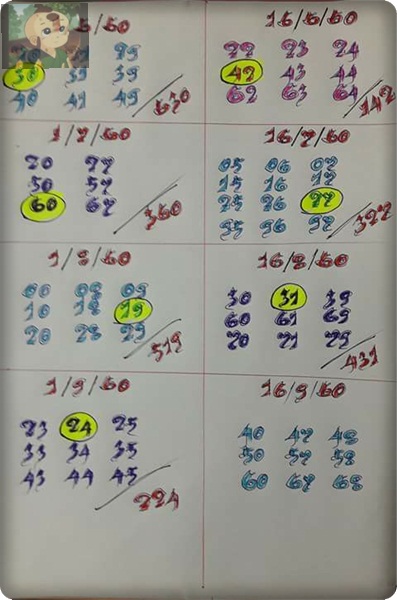 6/60
29
30 31 39
40 41 49
630
16/6/60
22 23 24
42 43 44
62 63 64
142
1/7/60
20 27
50 57
60 67
360
16/7/60
05 06 07
15 16 17
25 26 27
95 96 97
327
1/8/60
00 08 09
10 18 19
20 28 29
519
16/8/60
30 31 39
60 61 69
70 71 79
431
1/9/60
23 24 25
33 34 35
43 44 45
224
16/9/60
40 47 48
50 57 58
60 67 68